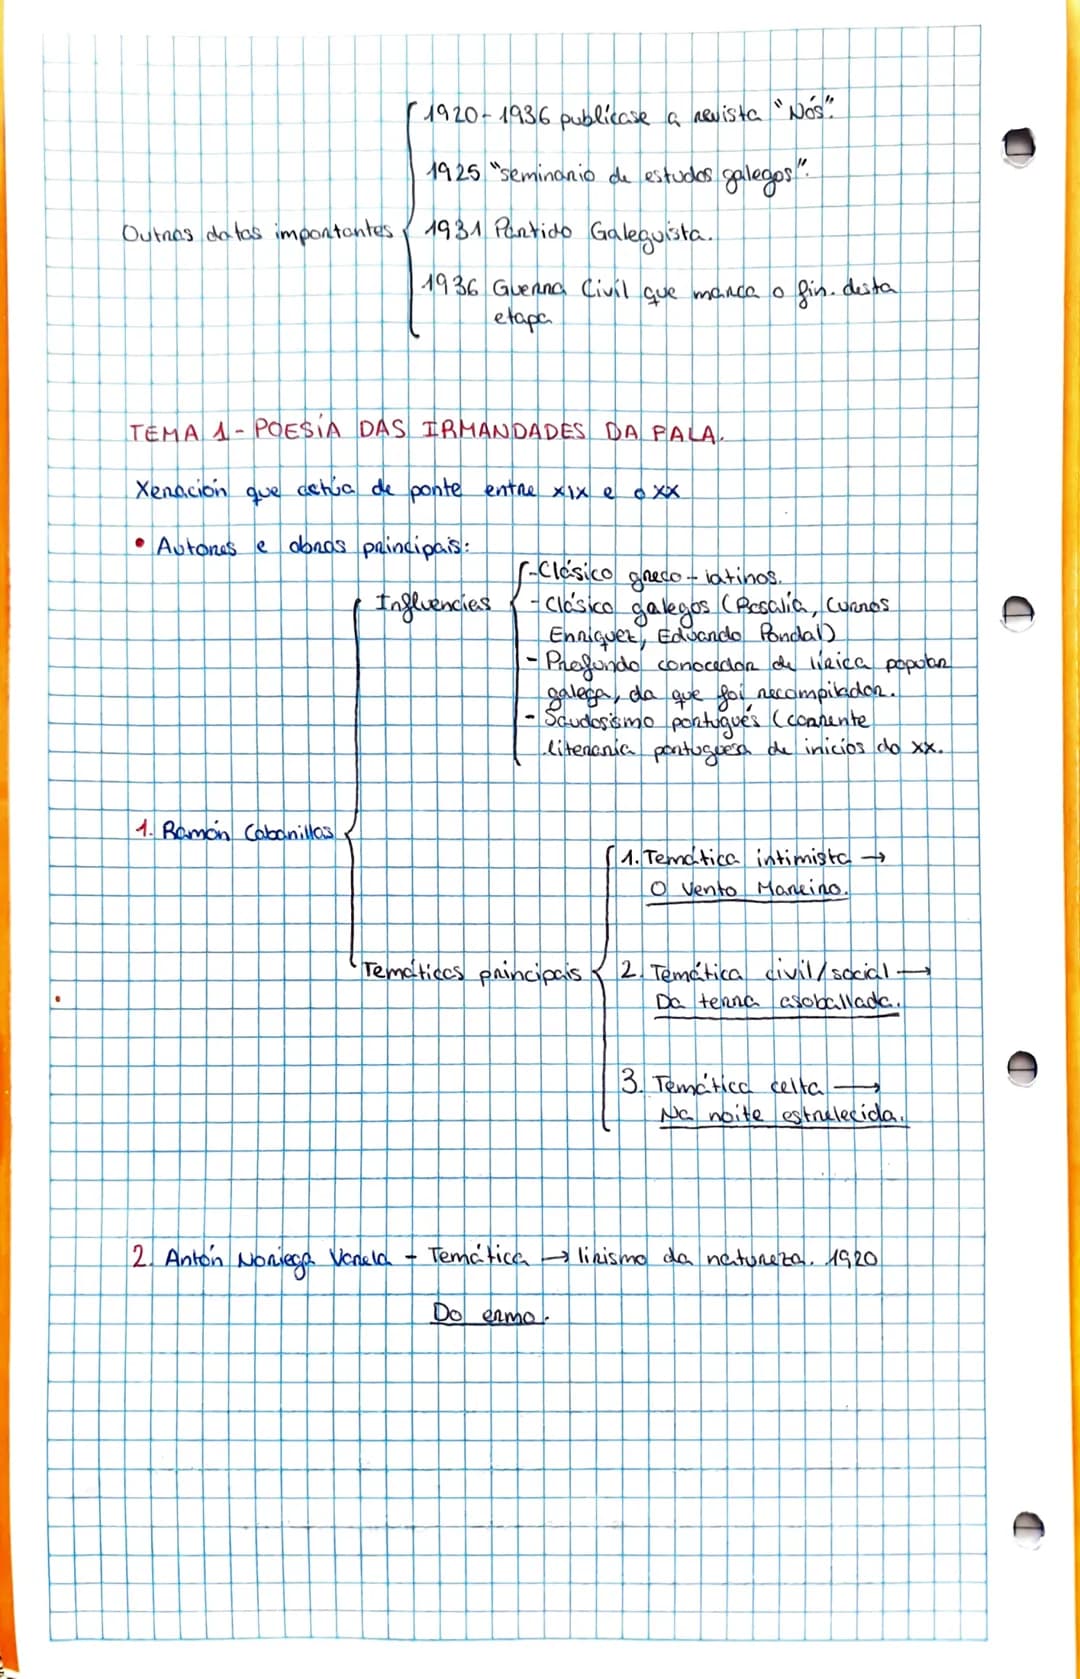 1920-1936 publícase a revista "Nós".
1925 "seminario de estudos galegos".
Outras datas importantes
1931 Partido Galeguista.
1936 Guerra Civil que marca o fin. desta
etapa
TEMA 1- POESÍA DAS IRMANDADES DA FALA.
Xeración que actúa de ponte entre XIX e o XX
• Autores e obras principais:
Influencias
-Clásico greco-latinos.
-Clásico galegos (Rosalía, Curros
Enríquez, Eduardo Pondal)
- Profundo conocedor de lírica popular
galega, da que foi recompilador.
- Saudosismo portugués (corrente
literaria portuguesa de inicios do XX.
1. Ramón Cabanillas
1. Temática intimista →
O Vento Mareiro.
Temáticas principais
2. Temática civil/social →
Da terra asoballada.
3. Temática celta →
Na noite estrelecida.
2. Antón Noriega Varela - Temática → lirismo da natureza. 1920
Do ermo.